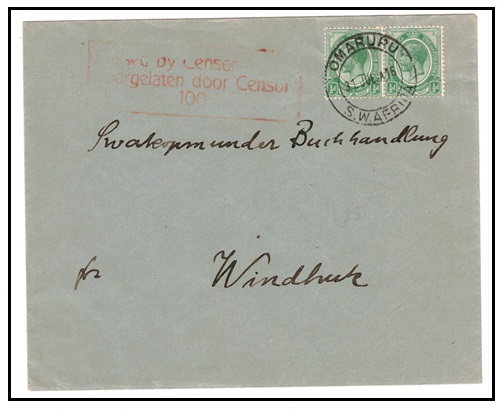 sed by Censor
orgelaten door Censor
100
OMARURU
31 JUL A 16
S.W. AFRICA
Swakopmunder Buchhandlung
Windhuk